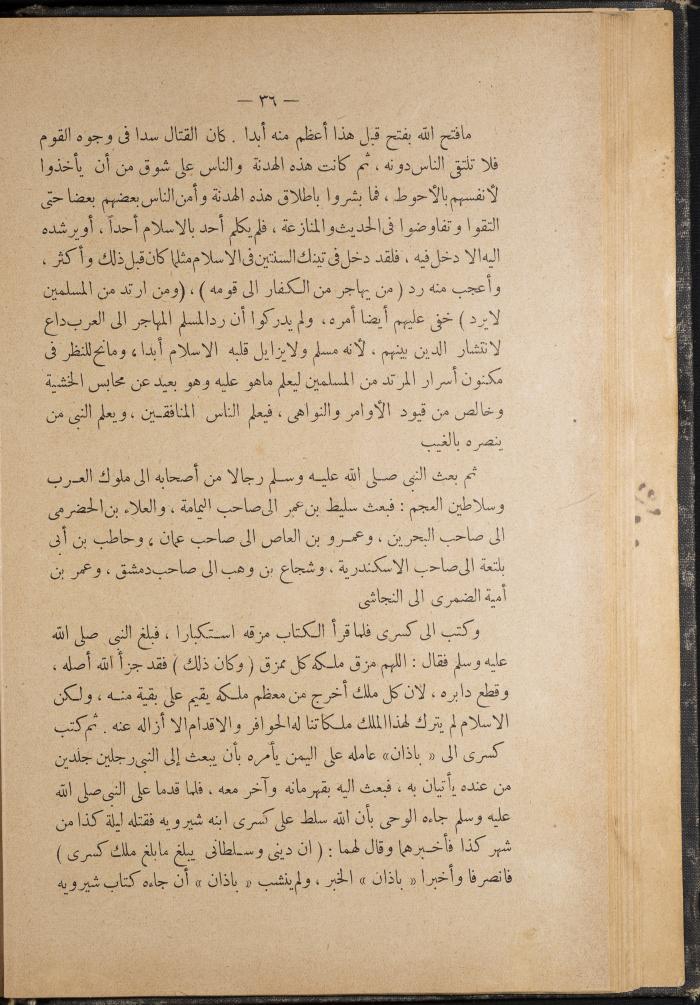 — ٣٦ —
مافتح الله بفتح قبل هذا أعظم منه أبدا . كان القتال سدا فى وجوه القوم
فلا تلتقى الناس دونه ، ثم كانت هذه الهدنة والناس على شوق من أن يأخذوا
لأنفسهم بالأحوط ، فما بشروا باطلاق هذه الهدنة وأمن الناس بعضهم بعضا حتى
التقوا وتفاوضوا فى الحديث والمنازعة ، فلم يكلم أحد بالاسلام أحداً ، أويرشده
اليه الا دخل فيه ، فلقد دخل فى تينك السنتين فى الاسلام مثلما كان قبل ذلك وأكثر ،
وأعجب منه رد ( من يهاجر من الكفار الى قومه ) ، ( ومن ارتد من المسلمين
لايرد ) خفى عليهم أيضا أمره ، ولم يدركوا أن رد المسلم المهاجر الى العرب داع
لانتشار الدين بينهم ، لأنه مسلم ولا يزايل قلبه الاسلام أبدا ، ومانح للنظر فى
مكنون أسرار المرتد من المسلمين ليعلم ماهو عليه وهو بعيد عن محابس الخشية
وخالص من قيود الأوامر والنواهى ، فيعلم الناس المنافقين ، ويعلم النبى من
ينصره بالغيب
ثم بعث النبى صلى الله عليه وسلم رجالا من أصحابه الى ملوك العرب
وسلاطين العجم : فبعث سليط بن عمر الى صاحب اليمامة ، والعلاء بن الحضرمى
الى صاحب البحرين ، وعمرو بن العاص الى صاحب عمان ، وحاطب بن أبى
بلتعة الى صاحب الاسكندرية ، وشجاع بن وهب الى صاحب دمشق ، وعمر بن
أمية الضمرى الى النجاشى
وكتب الى كسرى فلما قرأ الكتاب مزقه استكبارا ، فبلغ النبى صلى الله
عليه وسلم فقال : اللهم مزق ملكه كل ممزق ( وكان ذلك ) فقد جزأ الله أصله ،
وقطع دابره ، لان كل ملك أخرج من معظم ملكه يقيم على بقية منه ، ولكن
الاسلام لم يترك لهذا الملك ملكا تناله الحوافر والاقدام الا أزاله عنه . ثم كتب
كسرى الى « باذان » عامله على اليمن يأمره بأن يبعث إلى النبى رجلين جلدين
من عنده يأتيان به ، فبعث اليه بقهرمانه وآخر معه ، فلما قدما على النبى صلى الله
عليه وسلم جاءه الوحى بأن الله سلط على كسرى ابنه شيرويه فقتله ليلة كذا من
شهر كذا فأخبرهما وقال لهما : ( ان دينى وسلطانى يبلغ مابلغ ملك كسرى )
فانصرفا وأخبرا « باذان » الخبر ، ولم ينشب « باذان » أن جاءه كتاب شيرويه